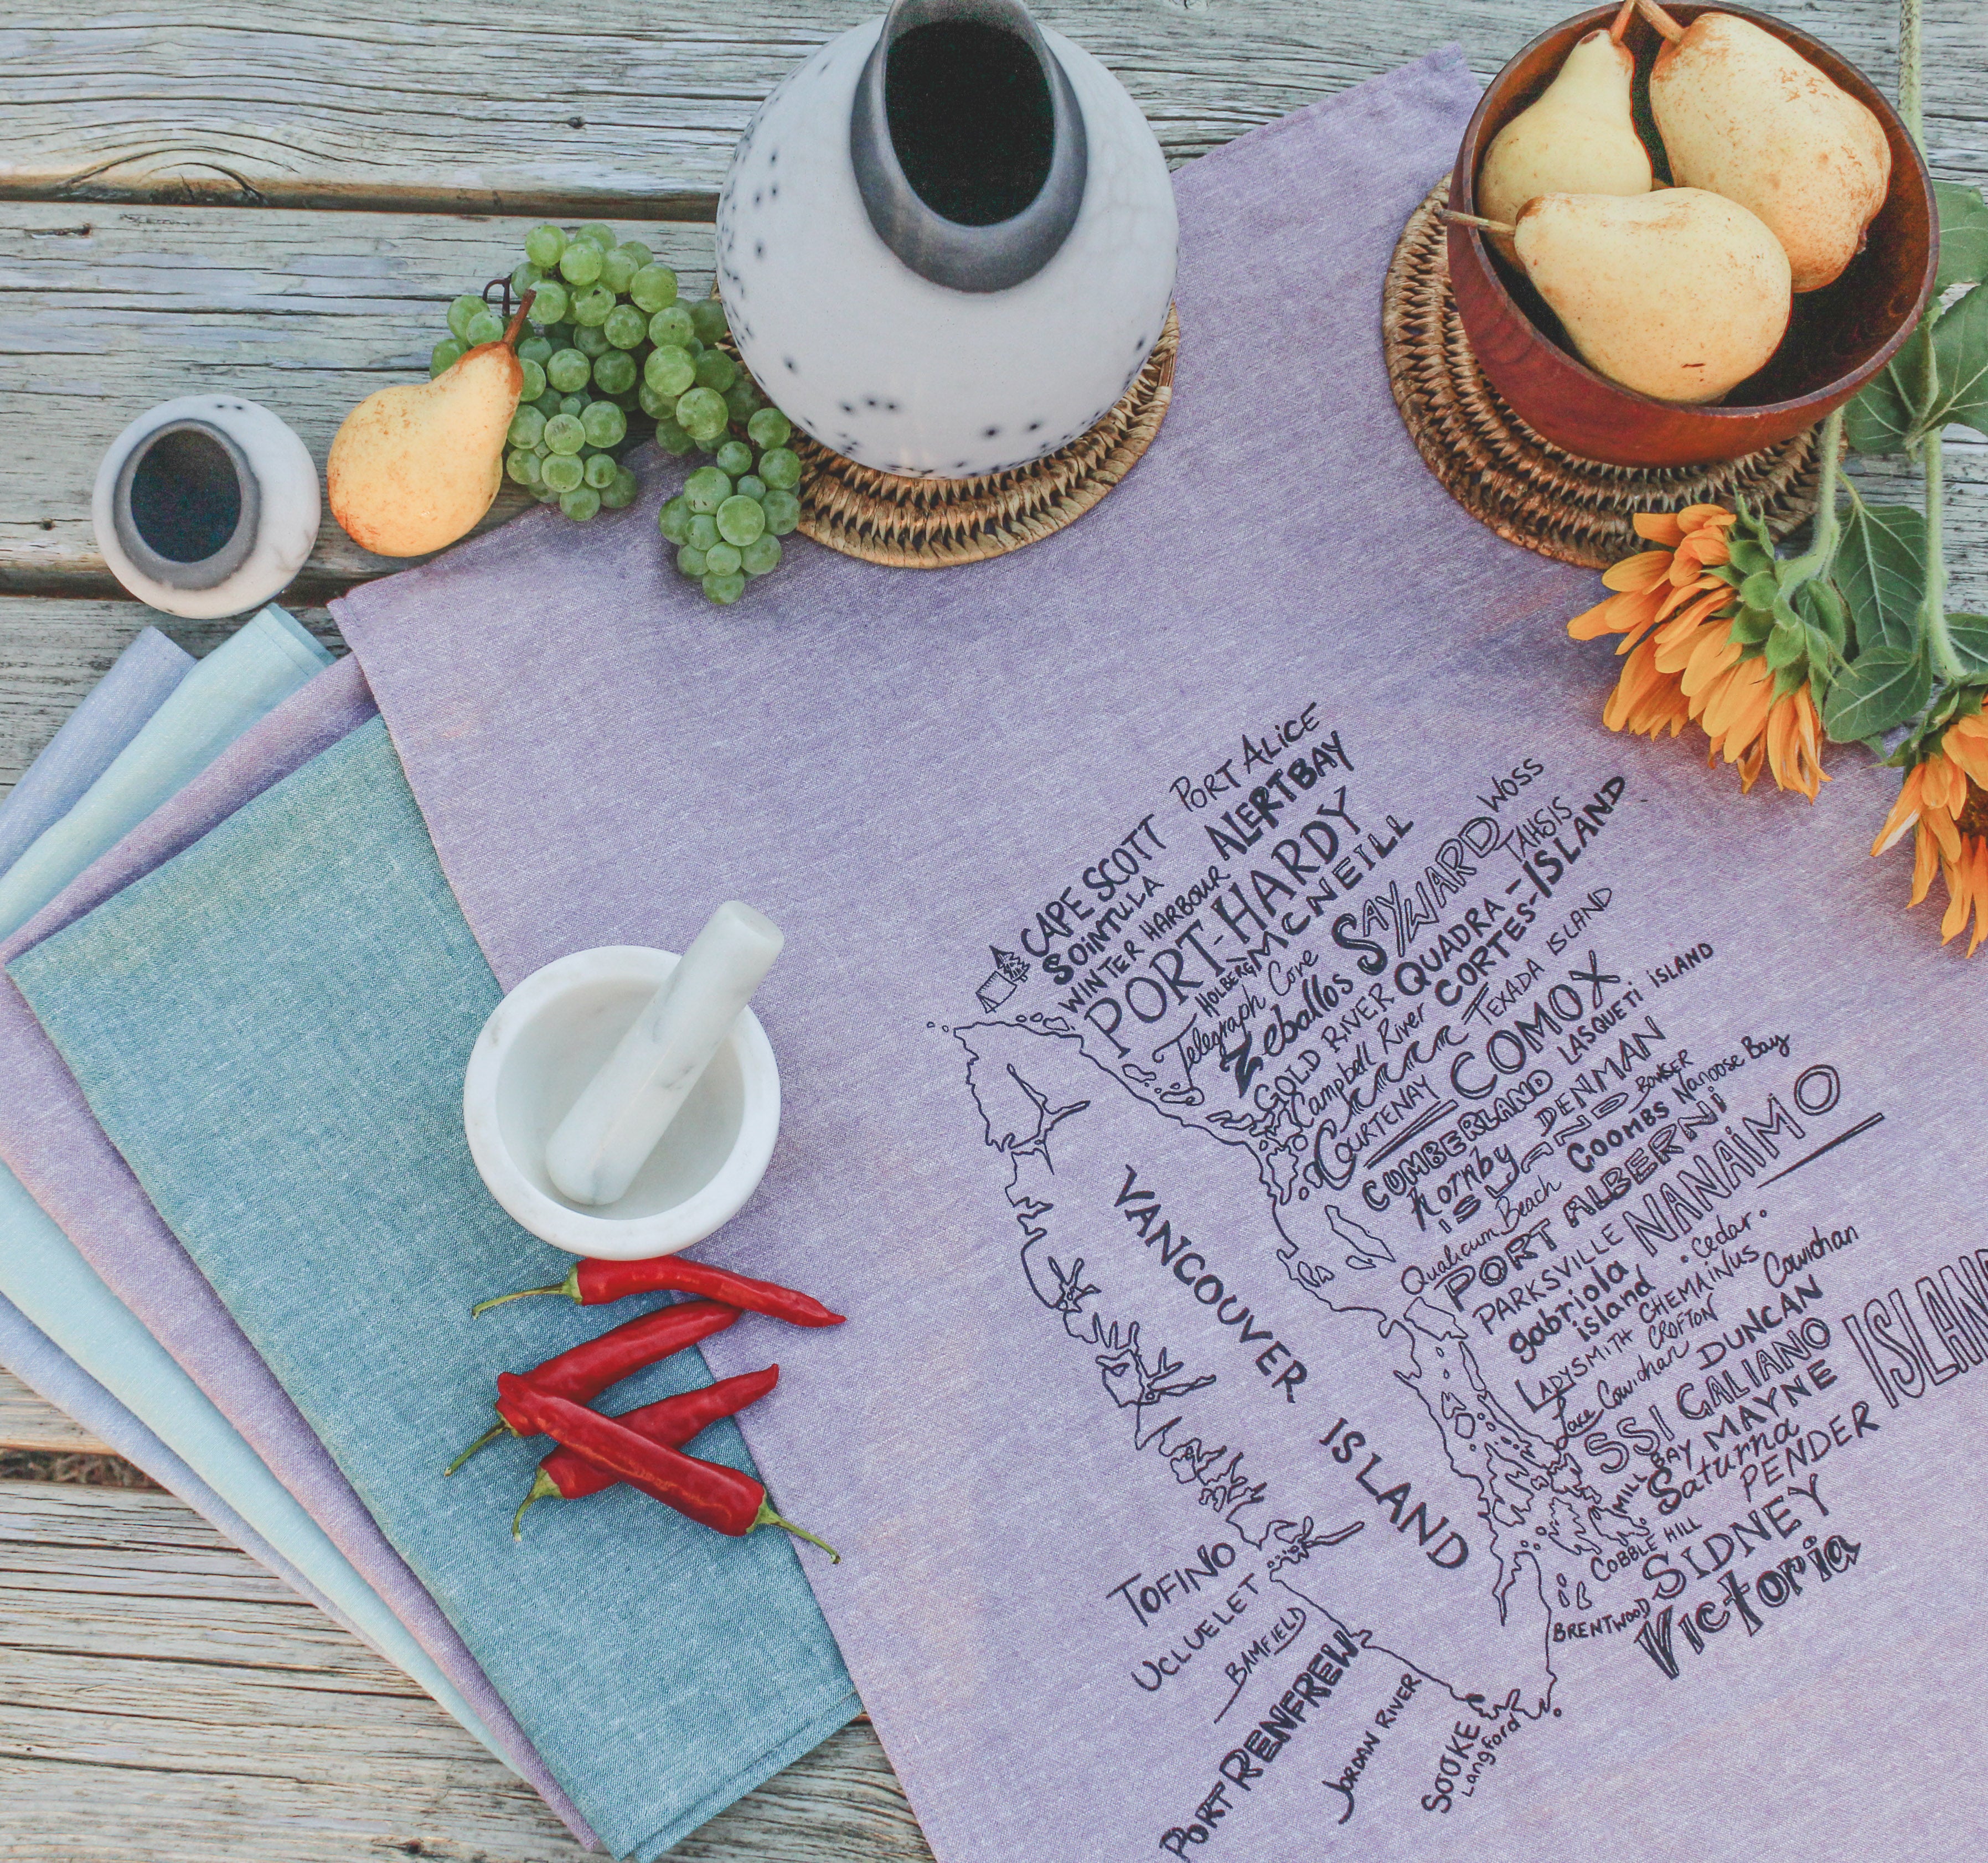 PORT ALICE
CAPE SCOTT
ALERTBAY
SOINTULA
WINTER HARBOUR
PORT-HARDY
HOLBERG
MCNEILL
WOSS
Telegraph Cove
SAYWARD
TAHSIS
Zeballos
QUADRA-ISLAND
GOLD RIVER
CORTES-
Campbell River
TEXADA ISLAND
COURTENAY
COMOX
CUMBERLAND
LASQUETI ISLAND
hornby
DENMAN
ISLAND
BOWSER
Qualicum Beach
COOMBS
Nanoose Bay
PORT ALBERNI
PARKSVILLE
NANAIMO
gabriola
island
• Cedar •
LADYSMITH
CHEMAINUS
CROFTON
Cowichan
Lake Cowichan
DUNCAN
SSI
GALIANO
ISLAN
MILL BAY
MAYNE
Saturna
PENDER
COBBLE HILL
SIDNEY
BRENTWOOD
Victoria
VANCOUVER ISLAND
TOFINO
UCLUELET
BAMFIELD
PORT RENFREW
JORDAN RIVER
SOOKE
Langford